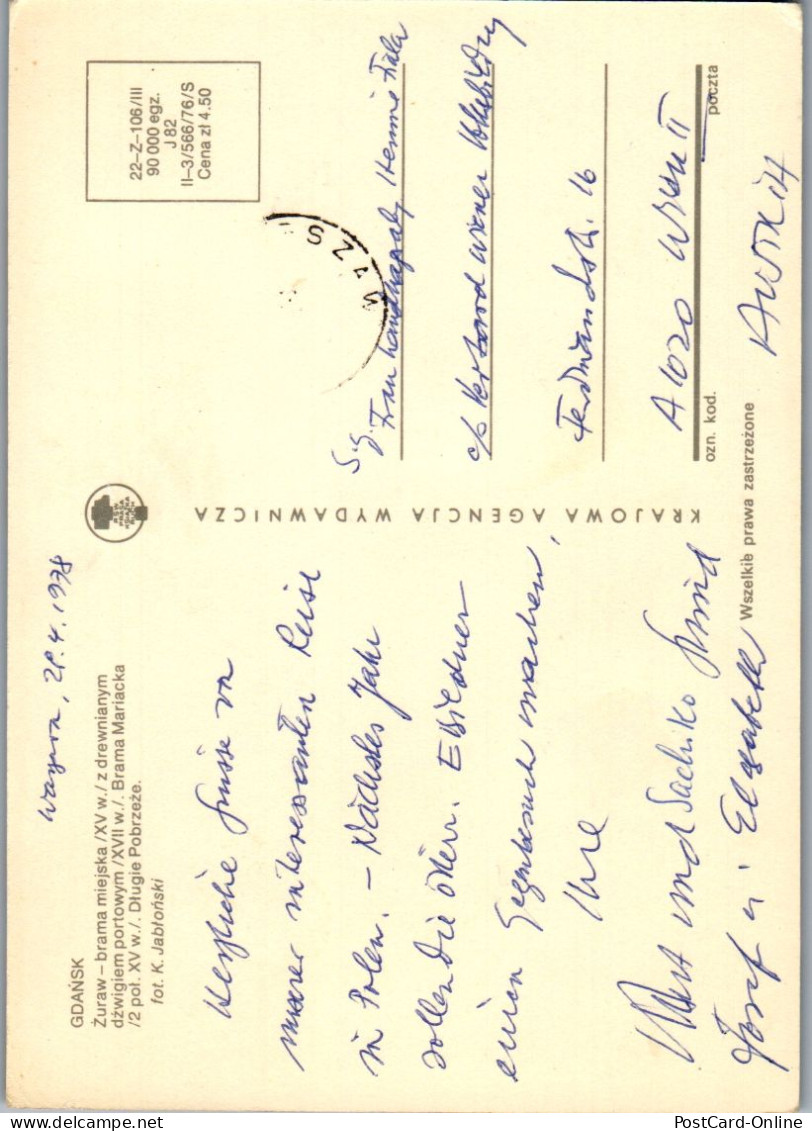 GDAŃSK
Żuraw – brama miejska /XV w./ z drewnianym
dźwigiem portowym /XVII w./. Brama Mariacka
/2 poł. XV w./. Długie Pobrzeże.
fot. K. Jabłoński
28.4.1978
Herzliche Grüsse von
unserer interessanten Reise
in Polen. – Nächstes Jahr
sollen die österr.
einen Gegenbesuch machen,
Ihre
und Sachiko
Josef u. Elisabeth
KRAJOWA AGENCJA WYDAWNICZA
22–Z–106/III
90 000 egz.
J 82
II–3/566/76/S
Cena zł 4.50
S.g.
Frau
c/o Verband Wiener
Ferdinandstr. 16
A 1020 Wien II
Austria
ozn. kod.
poczta
Wszelkie prawa zastrzeżone
PostCard-Online